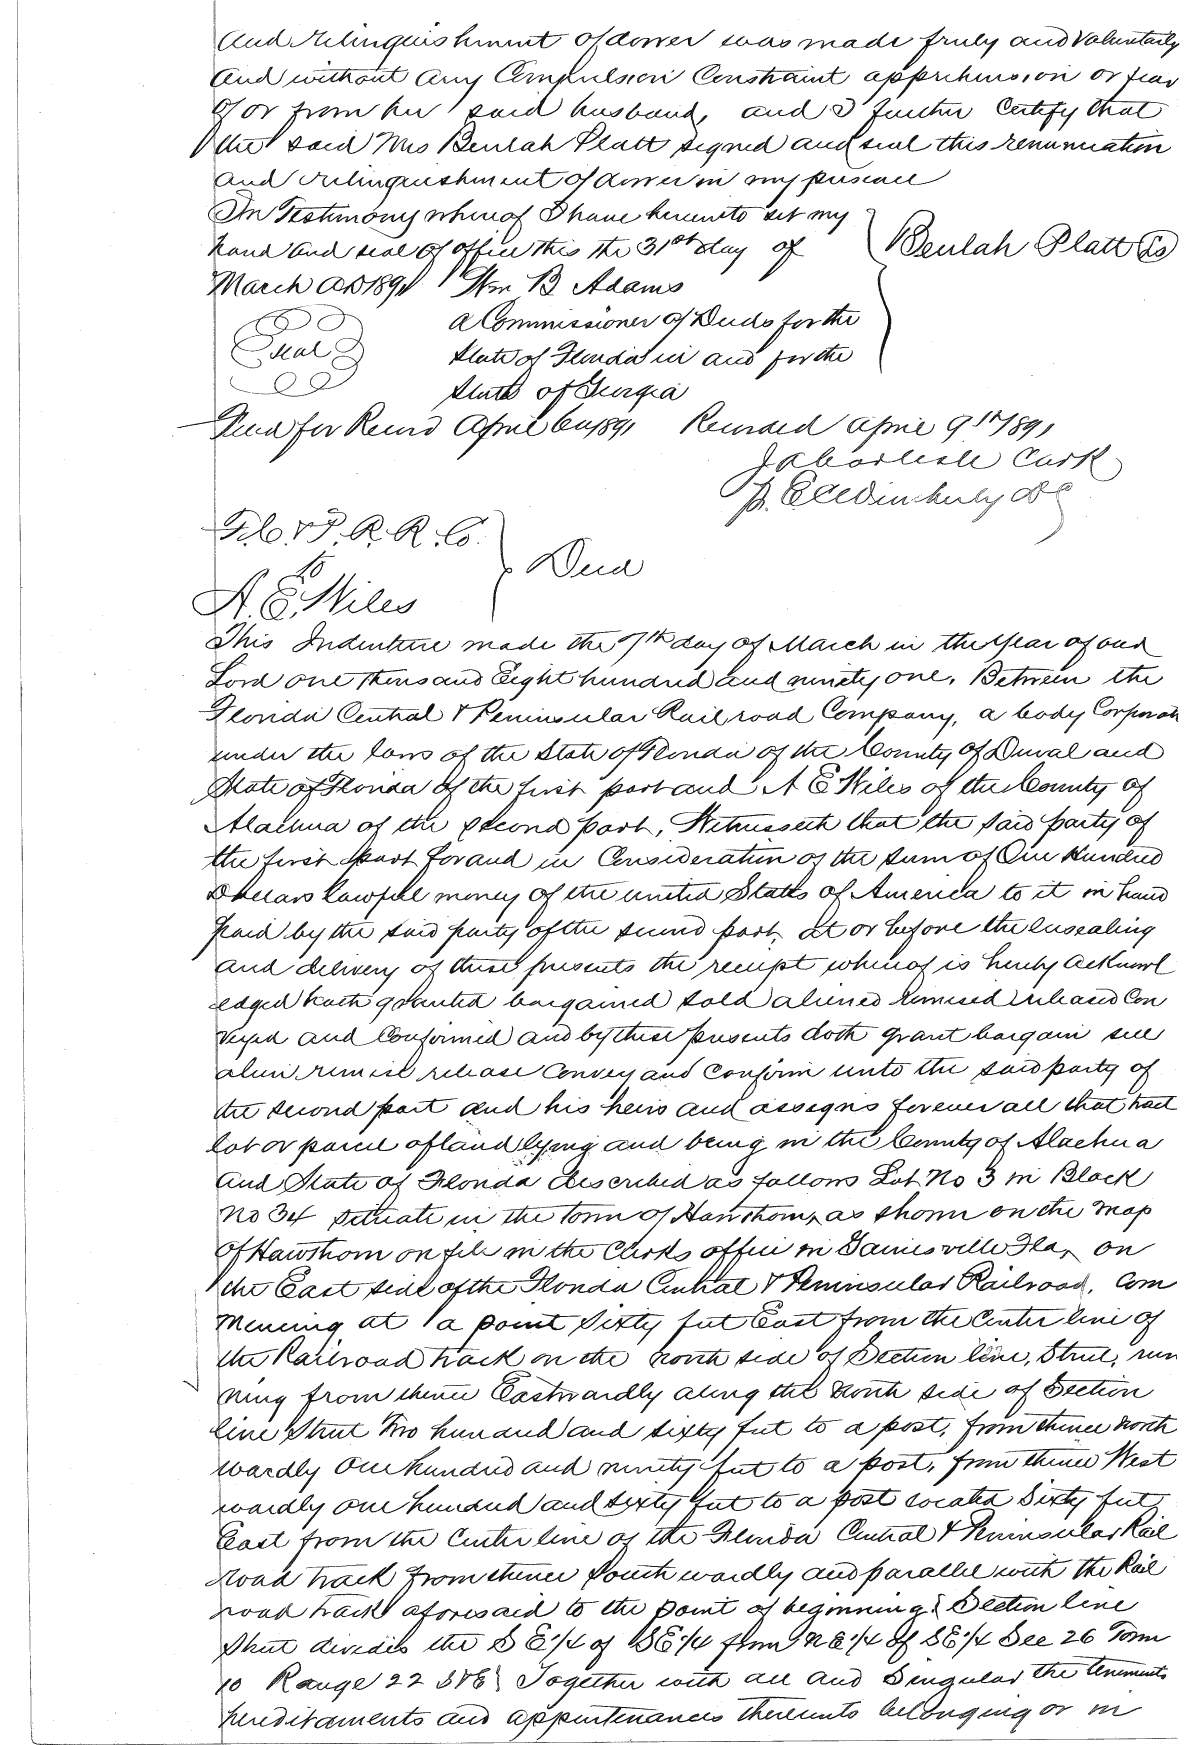 and relinquishment of dower was made freely and voluntarily
and without any Compulsion Constraint apprehension or fear
of or from her said husband, and I further Certify that
the said Mrs Beulah Platt signed and seal this renunciation
and relinquishment of dower in my presence
In Testimony whereof I have hereunto set my
hand and seal of office this the 31st day of
March AD 1891 Wm B Adams
Beulah Platt LS
a Commissioner of Deeds for the
State of Florida in and for the
State of Georgia
Seal
Filed for Record April 6th 1891 Recorded April 9th 1891
J A Carlisle Clerk
p. Wimberly DC
F. C. & P. R. R. Co.
to
A. E. Wiles
Deed
This Indenture made the 7th day of March in the Year of our
Lord one thousand Eight hundred and ninety one, Between the
Florida Central & Peninsular Railroad Company, a body Corporate
under the laws of the State of Florida of the County of Duval and
State of Florida of the first part and A E Wiles of the County of
Alachua of the second part, Witnesseth that the said party of
the first part for and in Consideration of the sum of One Hundred
Dollars lawful money of the united States of America to it in hand
paid by the said party of the second part, at or before the ensealing
and delivery of these presents the receipt whereof is hereby acknowl
edged hath granted bargained sold aliened remised released Con
veyed and Confirmed and by these presents doth grant bargain sell
alien remise release Convey and Confirm unto the said party of
the second part and his heirs and assigns forever all that tract
lot or parcel of land lying and being in the County of Alachua
and State of Florida described as follows Lot No 3 in Block
No 34 situate in the town of Hawthorn, as shown on the map
of Hawthorn on file in the Clerks office in Gainesville Fla, on
the East side of the Florida Central & Peninsular Railroad, Com
mencing at a point Sixty feet East from the Center line of
the Railroad track on the north side of Section line, Street, run
ning from thence Eastwardly along the north side of Section
line Street Two hundred and sixty feet to a post, from thence north
wardly one hundred and ninety feet to a post, from thence West
wardly one hundred and sixty feet to a post located Sixty feet
East from the Center line of the Florida Central & Peninsular Rail
road track from thence South wardly and parallel with the Rail
road track aforesaid to the point of beginning; Section line
Street divides the S E 1/4 of SE 1/4 from NE 1/4 of SE 1/4 Sec 26 Town
10 Range 22 S & E; Together with all and Singular the tenements
hereditaments and appurtenances thereunto belonging or in